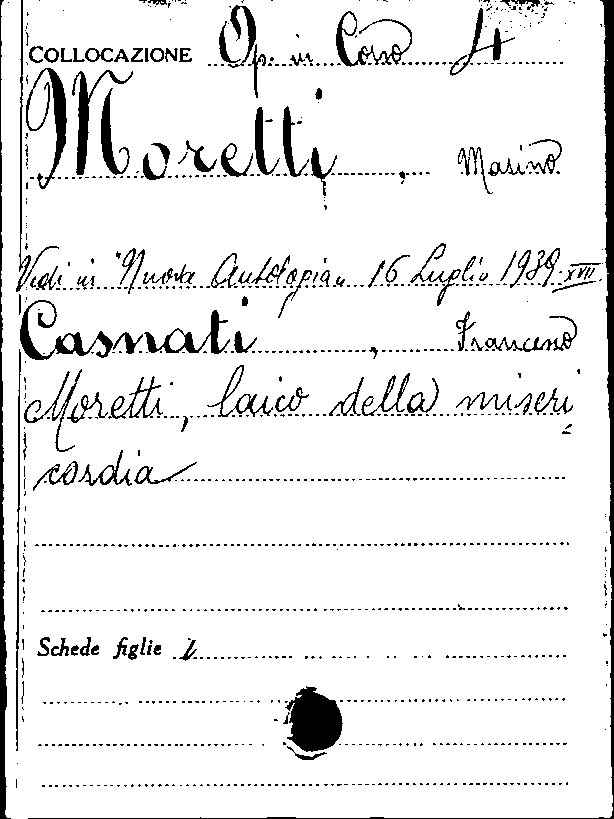 COLLOCAZIONE Op. in Corso 4
Moretti, Marino
Vedi in "Nuova Antologia" 16 Luglio 1939. XVII
Casnati, Francesco
Moretti, laico della miseri
cordia
Schede figlie 1